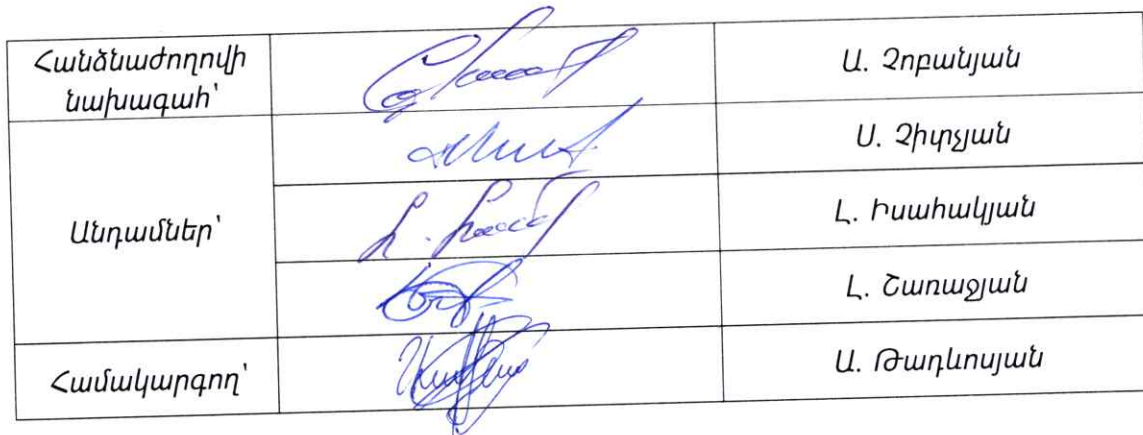 Հանձնաժողովի
նախագահ՝
Ա. Չոբանյան
Անդամներ՝
Ս. Չիտչյան
Լ. Իսահակյան
Լ. Շառաջյան
Համակարգող՝
Ա. Թադևոսյան